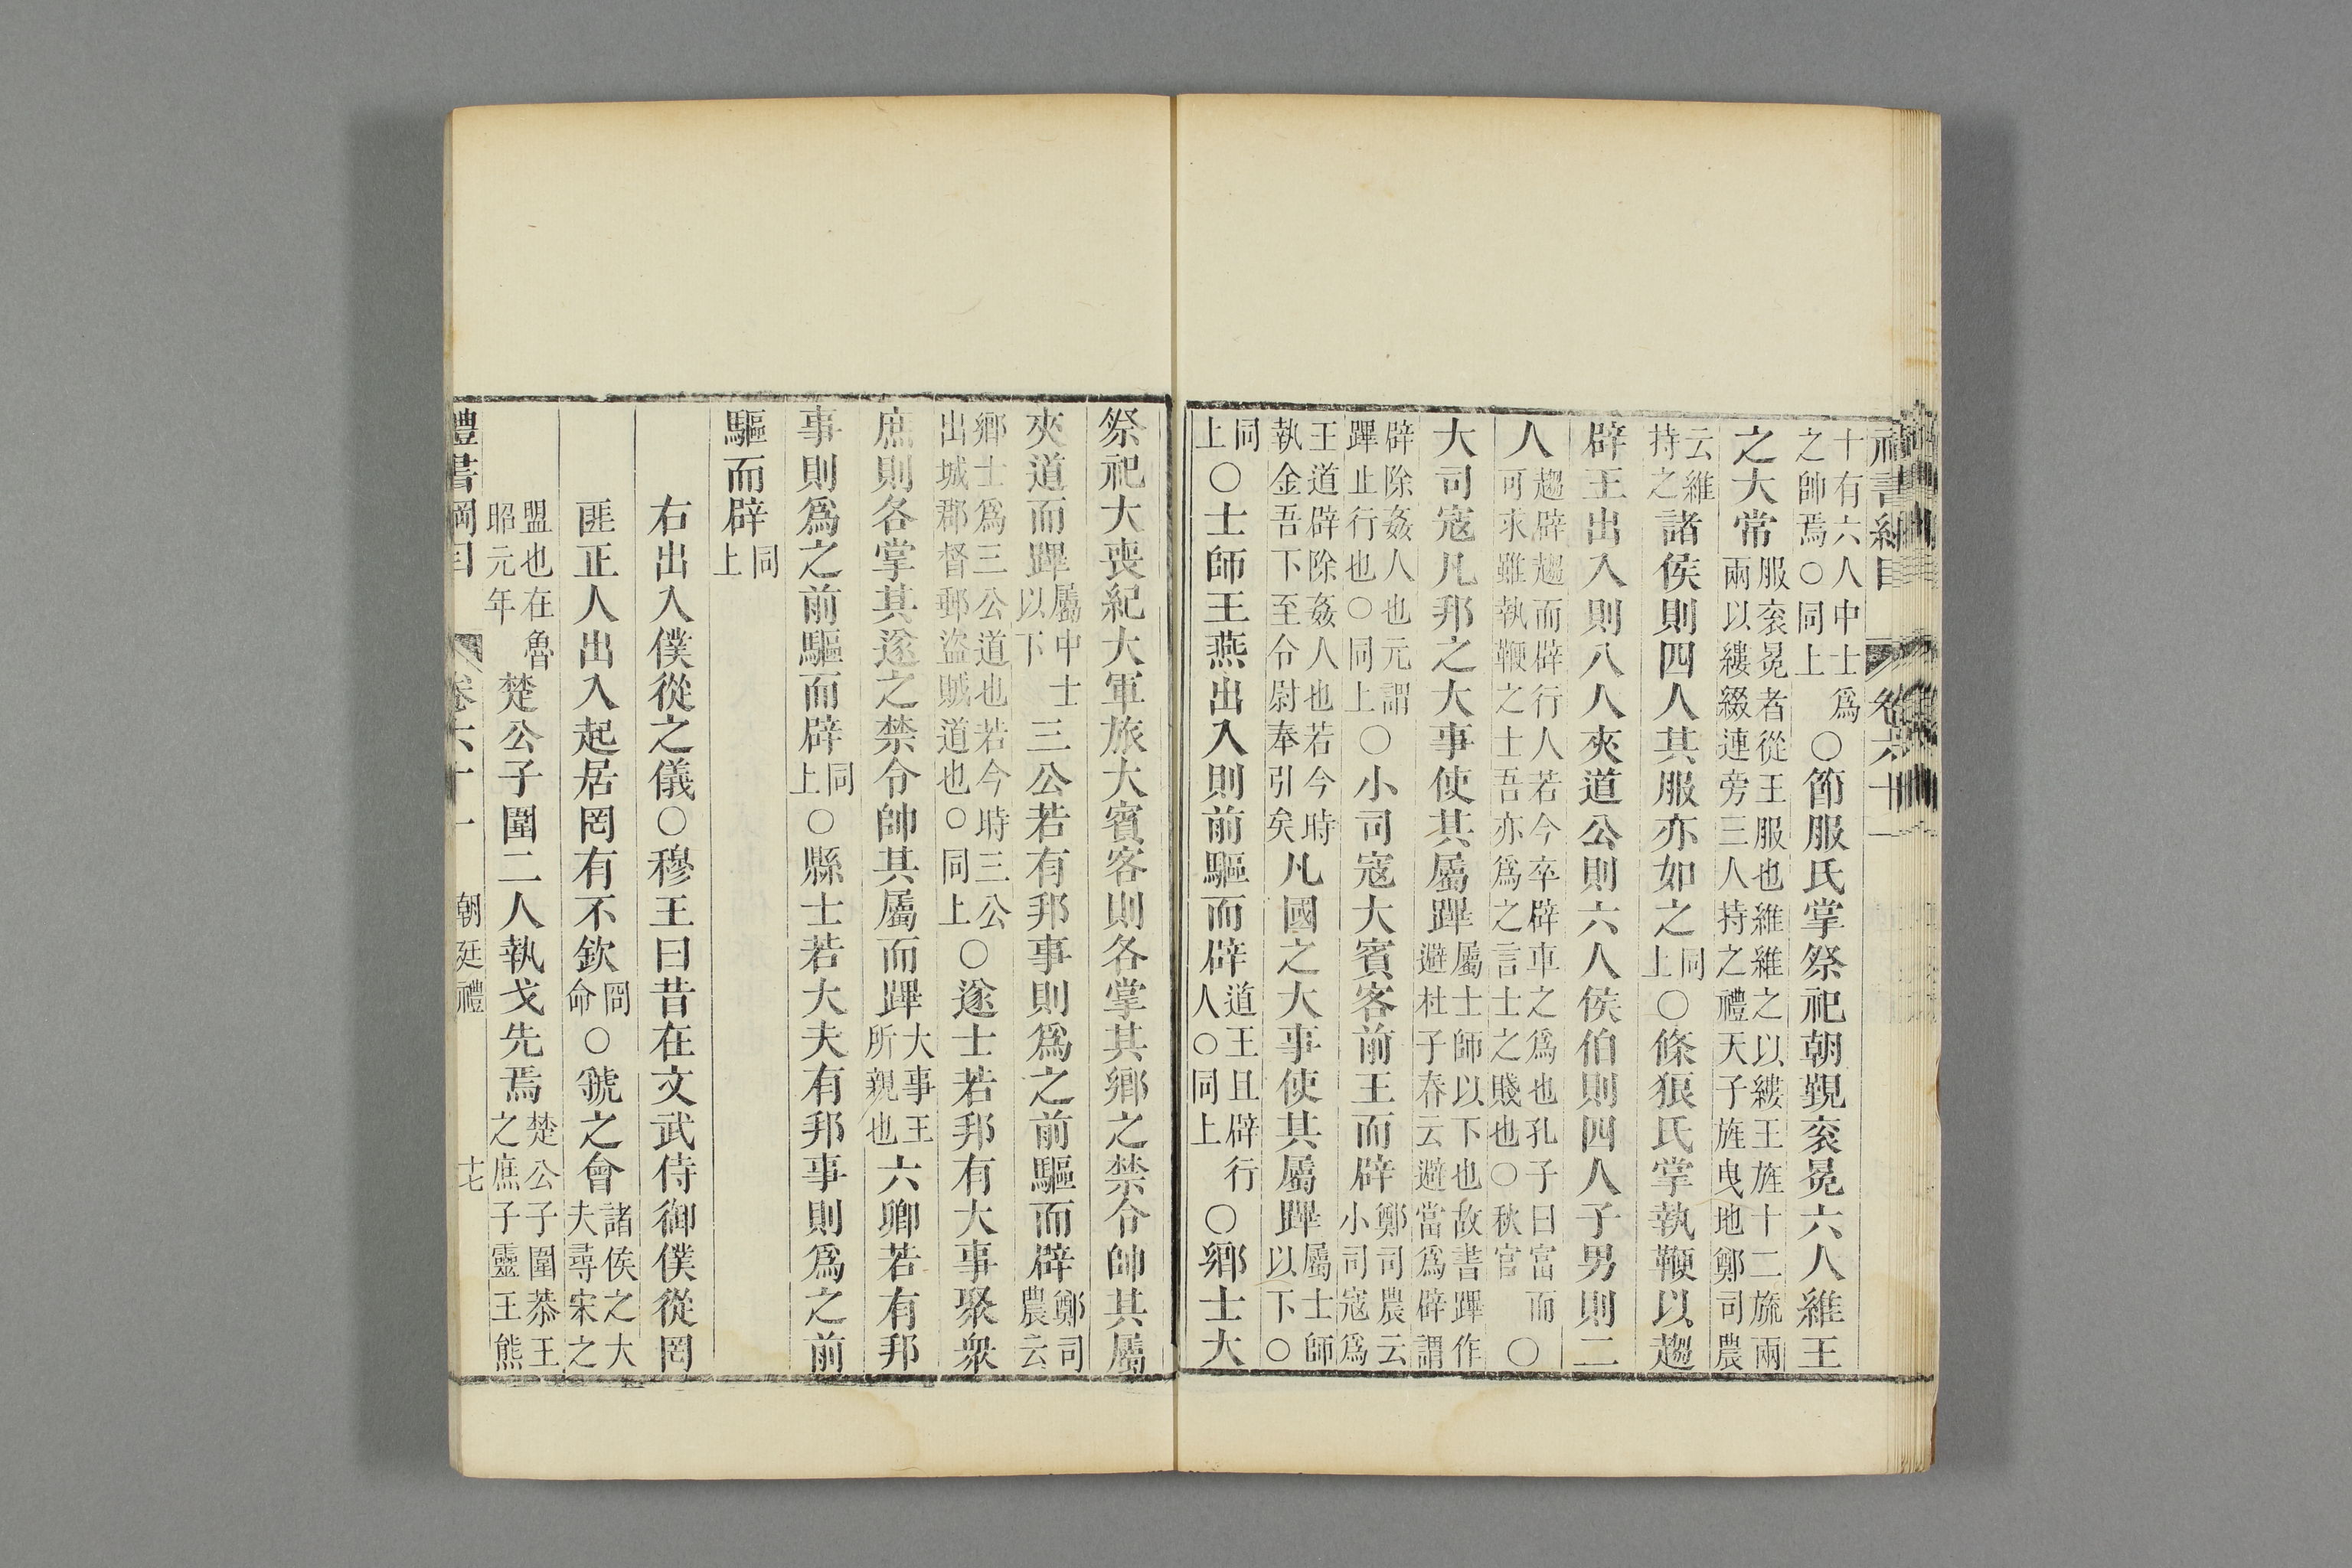 禮書綱目 卷六十一
十有六人中士爲之帥焉○同上○節服氏掌祭祀朝覲衮冕六人維王
之大常服衮冕者從王服也維維之以縷王旌十二旒兩兩以縷綴連旁三人持之禮天子旌曳地鄭司農
云維持之諸侯則四人其服亦如之同上○條狼氏掌執鞭以趨
辟王出入則八人夾道公則六人侯伯則四人子男則二
人趨辟趨而辟行人若今卒辟車之爲也孔子曰富而可求雖執鞭之士吾亦爲之言士之賤也○秋官○
大司寇凡邦之大事使其屬蹕屬士師以下也故書蹕作避杜子春云避當爲辟謂
辟除姦人也元謂蹕止行也○同上○小司寇大賓客前王而辟鄭司農云小司寇爲
王道辟除姦人也若今時執金吾下至令尉奉引矣凡國之大事使其屬蹕屬士師以下○
同上○士師王燕出入則前驅而辟道王且辟行人○同上○鄉士大
祭祀大喪紀大軍旅大賓客則各掌其鄉之禁令帥其屬
夾道而蹕屬中士以下三公若有邦事則爲之前驅而辟鄭司農云
鄉士爲三公道也若今時三公出城郡督郵盜賊道也○同上○遂士若邦有大事聚衆
庶則各掌其遂之禁令帥其屬而蹕大事王所親也六卿若有邦
事則爲之前驅而辟同上○縣士若大夫有邦事則爲之前
驅而辟同上
右出入僕從之儀○穆王曰昔在文武侍御僕從罔
匪正人出入起居罔有不欽冏命○虢之會諸侯之大夫尋宋之
盟也在魯昭元年楚公子圍二人執戈先焉楚公子圍恭王之庶子靈王熊
禮書綱目 卷六十一 朝廷禮 十七